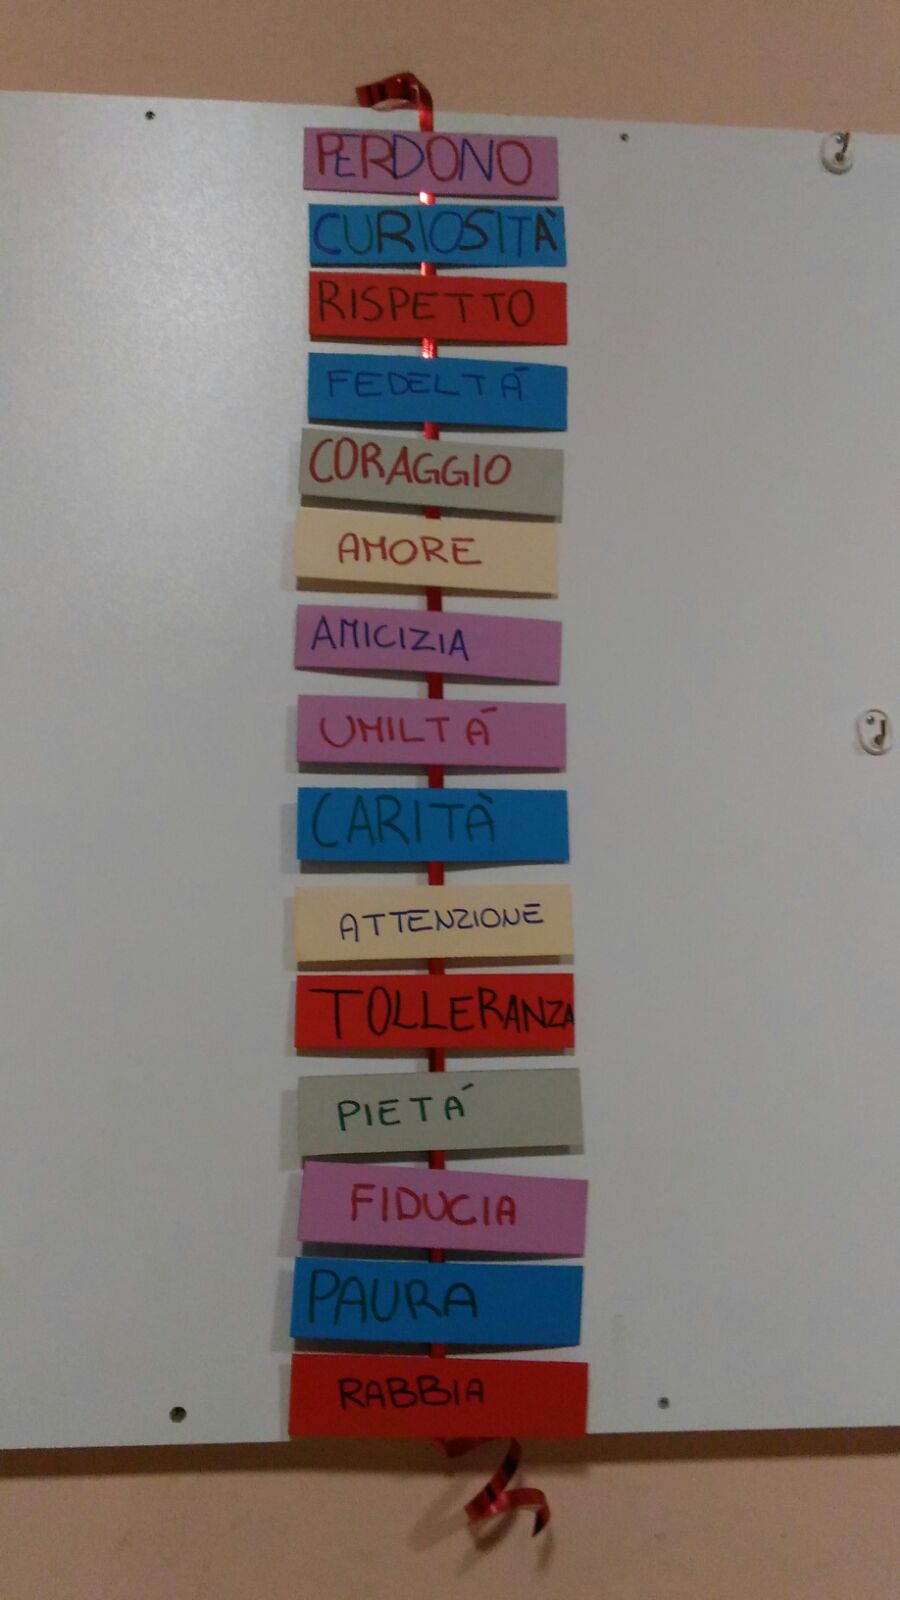 PERDONO
CURIOSITÀ
RISPETTO
FEDELTÁ
CORAGGIO
AMORE
AMICIZIA
UMILTÁ
CARITÀ
ATTENZIONE
TOLLERANZA
PIETÁ
FIDUCIA
PAURA
RABBIA